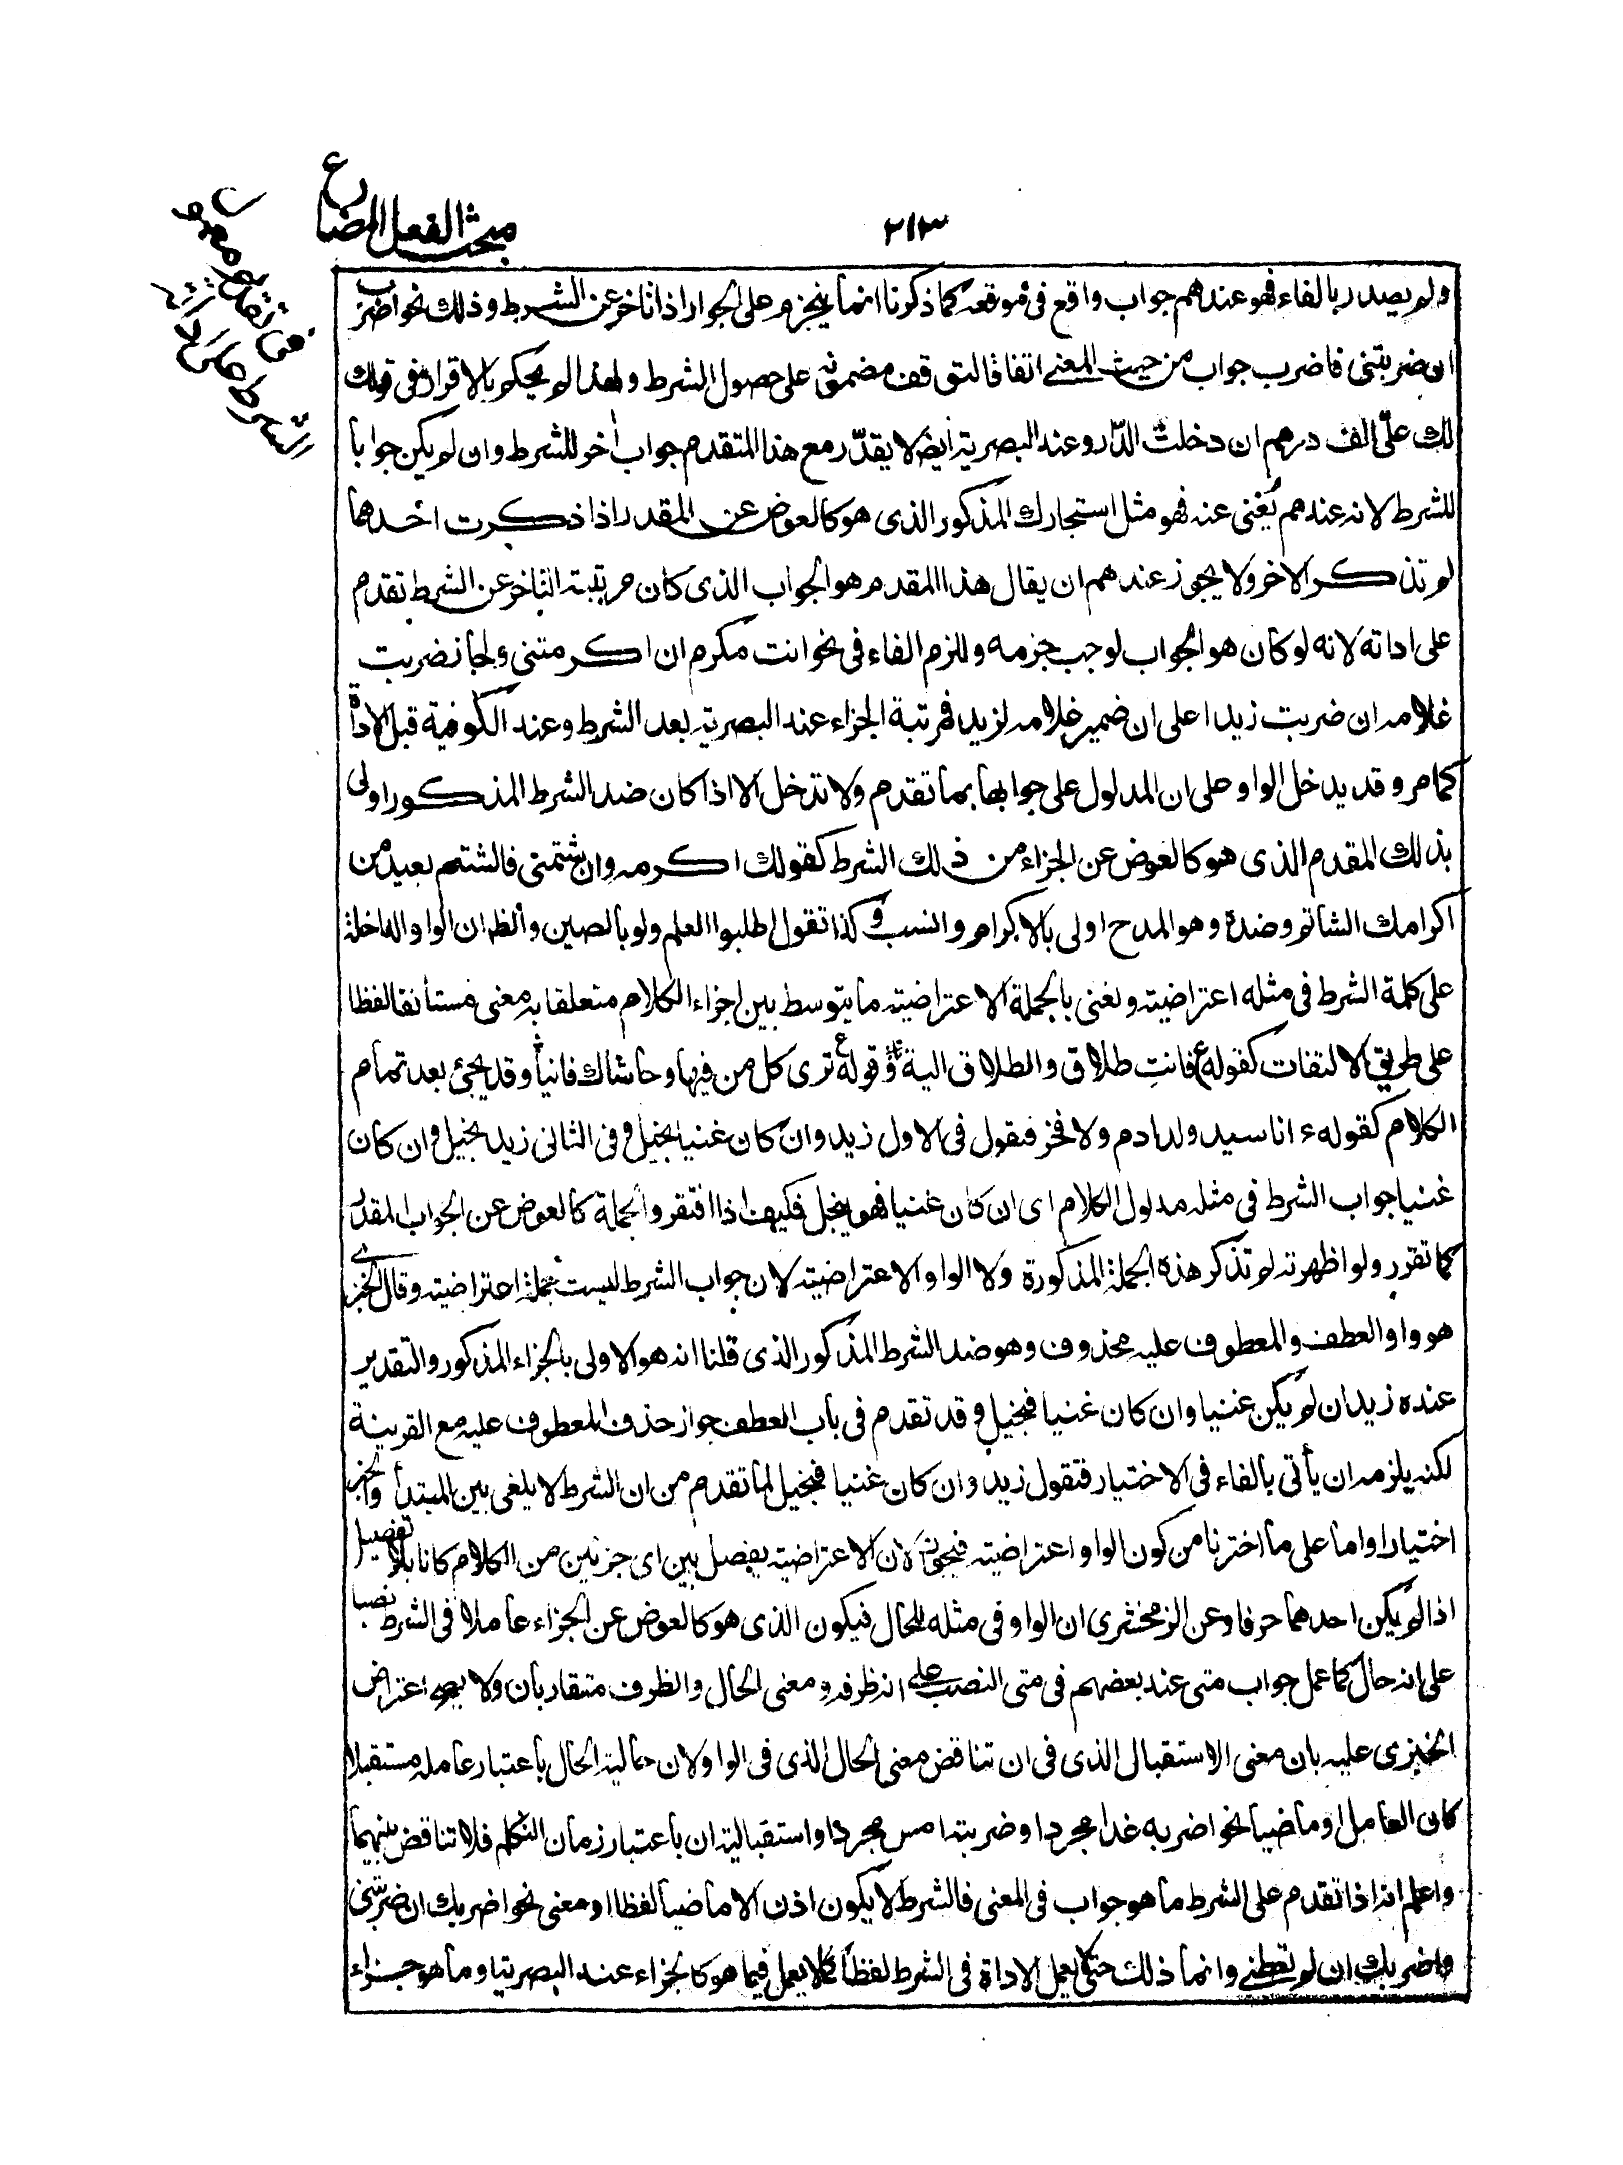 ٢١٣
مبحث الفعل المضارع
فى تقديم معمول
الشرط على الاداة
ولم يصدر بالفاء فهو عندهم جواب واقع فى موقعه كما ذكرنا انما ينجزم على الجوار اذا تأخر عن الشرط وذلك نحو اضرب
ان ضربتنى فاضرب جواب من حيث المعنى اتفاقا لتوقف مضمونه على حصول الشرط ولهذا لم يحكم بالاقرار فى قولك
لك علىّ الف درهم ان دخلت الدّار وعند البصرية ايضا لا يقدّر مع هذا المتقدم جواب اٰخر للشرط وان لم يكن جوابا
للشرط لانه عندهم يُغنى عنه فهو مثل استجارك المذكور الذى هو كالعوض عن المقدر اذا ذكرت احدهما
لم تذكر الاخر ولا يجوز عندهم ان يقال هذا المقدم هو الجواب الذى كان مرتبته التاخر عن الشرط تقدم
على اداته لانه لو كان هو الجواب لوجب جزمه وللزم الفاء فى نحو انت مكرم ان اكرمتنى ولجاز ضربت
غلامه ان ضربت زيدا على ان ضمير غلامه لزيد فمرتبة الجزاء عند البصرية بعد الشرط وعند الكوفية قبل الاداة
كما مر وقد يدخل الواو على ان المدلول على جوابها بما تقدم ولا تدخل الا اذا كان ضد الشرط المذكور اولى
بذلك المقدم الذى هو كالعوض عن الجزاء من ذلك الشرط كقولك اكرمه وان شتمنى فالشتم بعيد من
اكرامك الشاتم وضده وهو المدح اولى بالاكرام وانسب وكذا تقول اطلبوا العلم ولو بالصين والظ ان الواو الداخلة
على كلمة الشرط فى مثله اعتراضية ونعنى بالجملة الاعتراضية ما يتوسط بين اجزاء الكلام متعلقا به معنى مستأنفا لفظا
على طريق الالتفات كقوله ع فانتِ طلاق والطلاق الية وقوله ع ترى كل من فيها وحاشاك فانيا وقد يجئ بعد تمام
الكلام كقوله ء انا سيد ولد ادم ولا فخر فتقول فى الاول زيد وان كان غنيا بخيل و فى الثانى زيد بخيل وان كان
غنيا جواب الشرط فى مثله مدلول الكلام اى ان كان غنيا فهو بخيل فكيف اذا افتقر والجملة كالعوض عن الجواب المقدر
كما تقرر ولو اظهرته لم تذكر هذه الجملة المذكورة ولا الواو الاعتراضية لان جواب الشرط ليست بجملة اعتراضية وقال الجنزى
هو واو العطف والمعطوف عليه محذوف وهو ضد الشرط المذكور الذى قلنا انه هو الاولى بالجزاء المذكور والتقدير
عنده زيد ان لم يكن غنيا وان كان غنيا فبخيل و قد تقدم فى باب العطف جواز حذف المعطوف عليه مع القرينة
لكنه يلزمه ان يأتى بالفاء فى الاختيار فتقول زيد وان كان غنيا فبخيل لما تقدم من ان الشرط لا يلغى بين المبتدأ والخبر
اختيارا واما على ما اخترنا من كون الواو اعتراضية فيجوز لان الاعتراضية يفصل بين اى جزئين من الكلام كانا بلا تفصيل
اذا لم يكن احدهما حرفا وعن الزمخشرى ان الواو فى مثله للحال فيكون الذى هو كالعوض عن الجزاء عاملا فى الشرط نصبا
على انه حال كما عمل جواب متى عند بعضهم فى متى النصب على انه ظرفه ومعنى الحال والظرف متقاربان ولا يصح اعتراض
الجنزى عليه بان معنى الاستقبال الذى فى ان تناقض معنى الحال الذى فى الواو لان حالية الحال باعتبار عامله مستقبلا
كان العامل او ماضيا نحو اضربه غدا مجردا وضربته امس مجردا واستقبالية ان باعتبار زمان التكلم فلا تناقض بينهما
واعلم انه اذا تقدم على الشرط ما هو جواب فى المعنى فالشرط لا يكون اذن الا ماضيا لفظا او معنى نحو اضربك ان ضربتنى
واضربك ان لم تعطنى وانما ذلك حتى لا يعمل الاداة فى الشرط لفظا كما لا يعمل فيما هو كالجزاء عند البصرية او ما هو جزاء